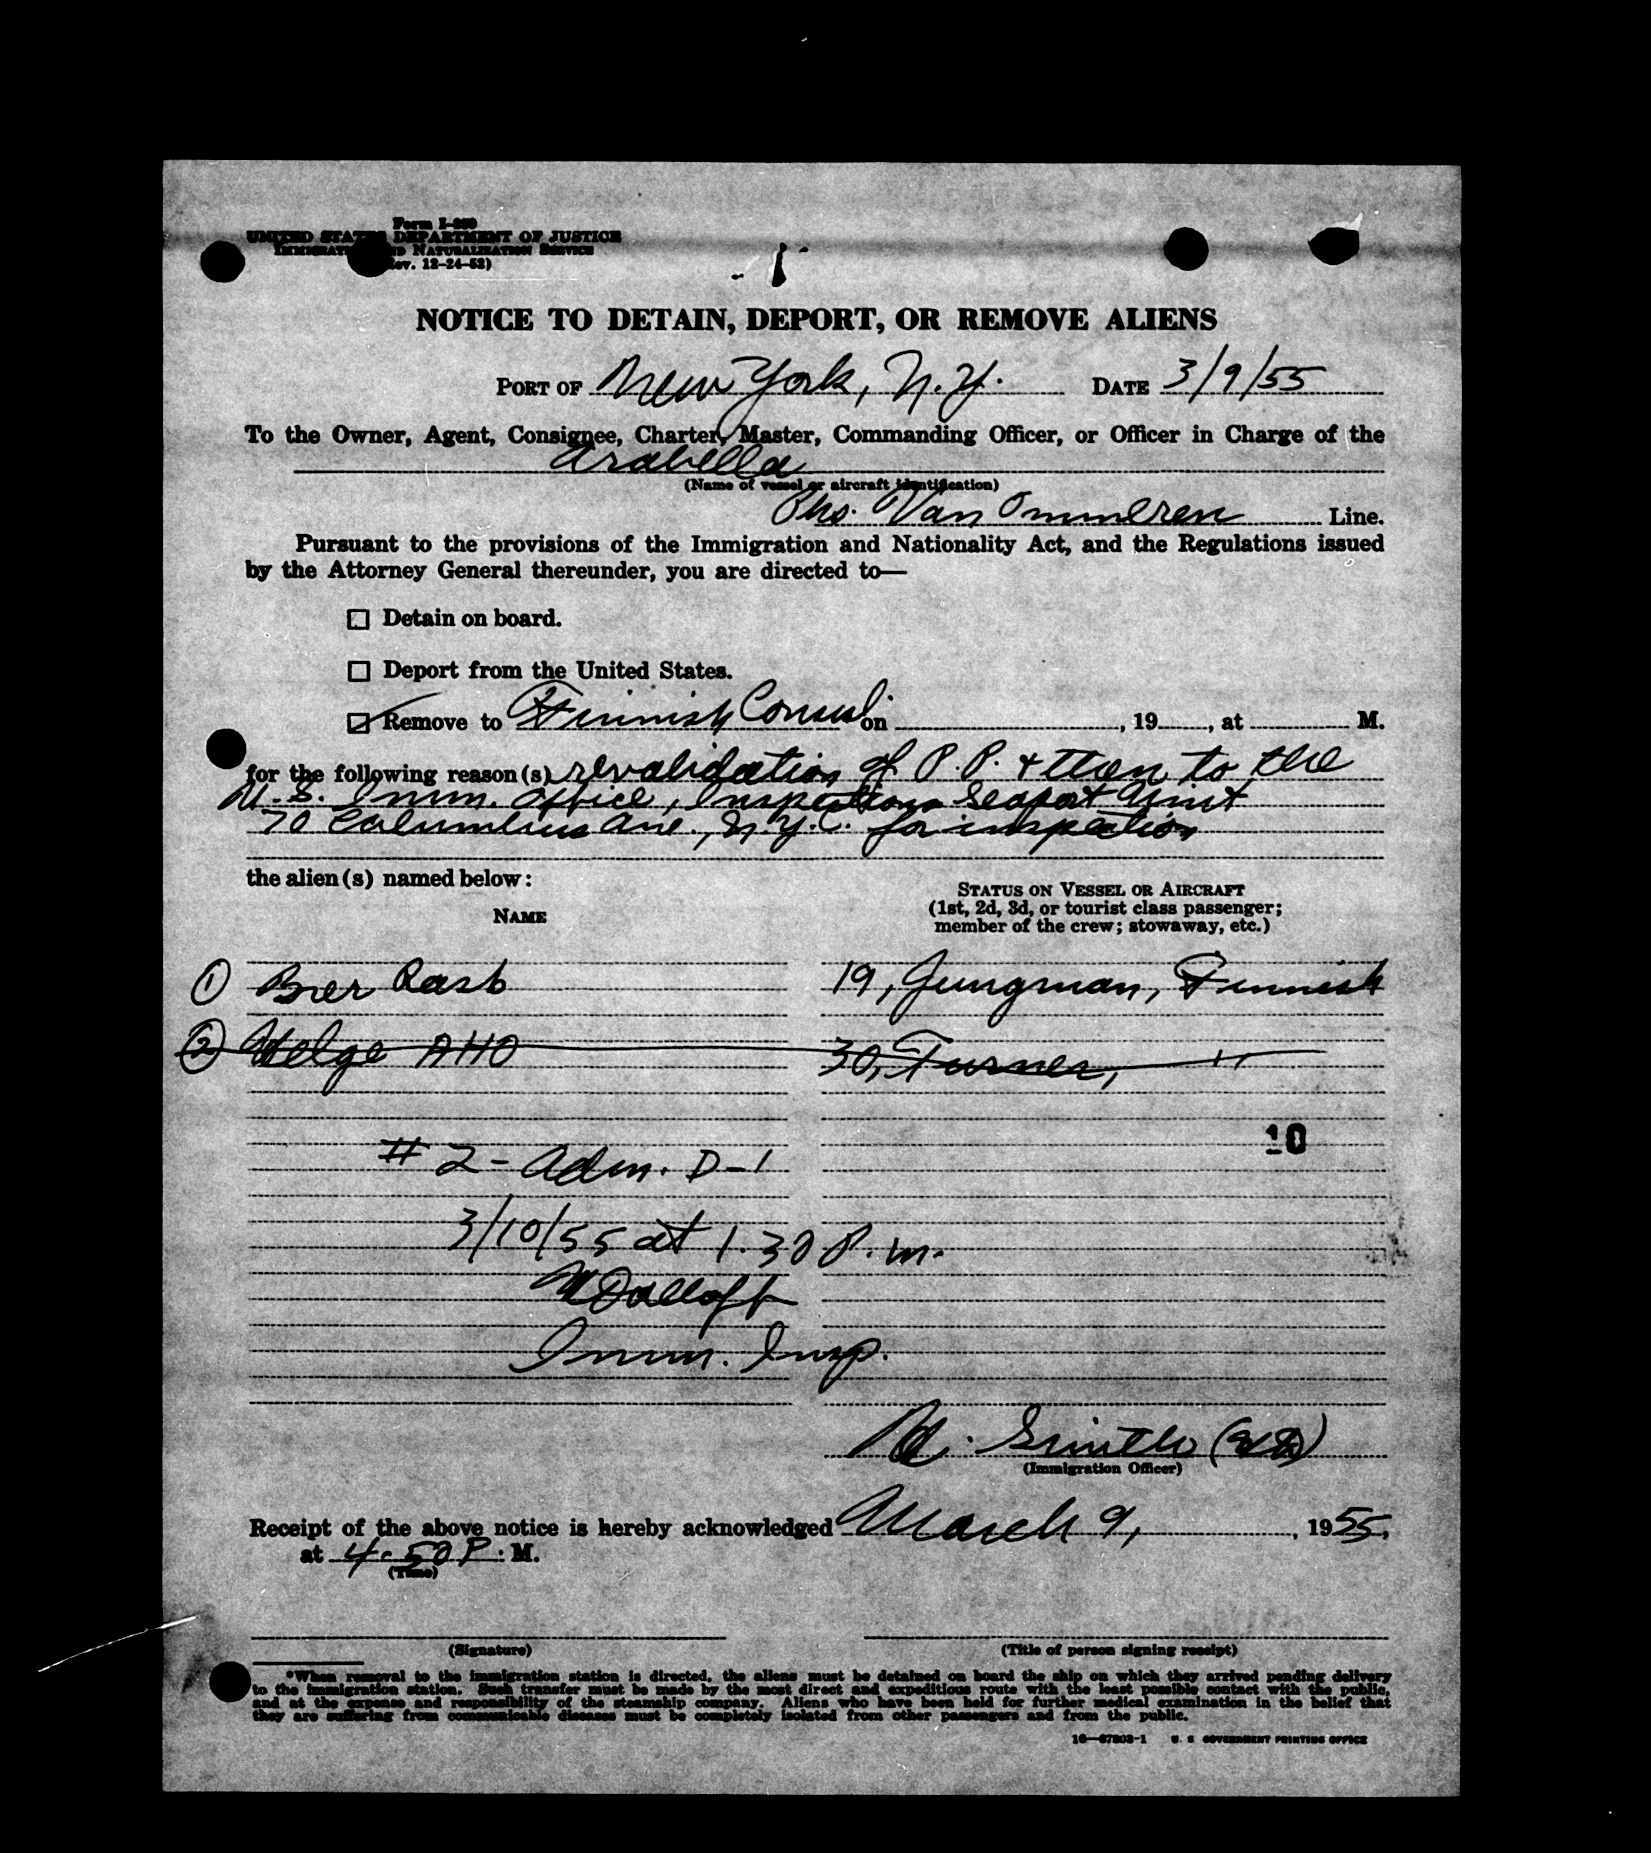 Form I-259
UNITED STATES DEPARTMENT OF JUSTICE
IMMIGRATION AND NATURALIZATION SERVICE
(Rev. 12-24-52)
NOTICE TO DETAIN, DEPORT, OR REMOVE ALIENS
PORT OF New York, N.Y. DATE 3/9/55
To the Owner, Agent, Consignee, Charter, Master, Commanding Officer, or Officer in Charge of the
Arabella
(Name of vessel or aircraft identification)
Phs. Van Ommeren Line.
Pursuant to the provisions of the Immigration and Nationality Act, and the Regulations issued
by the Attorney General thereunder, you are directed to—
Detain on board.
Deport from the United States.
Remove to Finnish Consul on , 19 , at M.
for the following reason(s) revalidation of P.P. & then to the
U.S. Imm. Office, Inspections Seaport Unit
70 Columbus Ave., N.Y.C. for inspection
the alien(s) named below:
STATUS ON VESSEL OR AIRCRAFT
(1st, 2d, 3d, or tourist class passenger;
member of the crew; stowaway, etc.)
NAME
① Rasb 19, Jungman, Finnish
② Helge AHO 30, Turner, "
10
# 2 - Adm. D-1
3/10/55 at 1.30 P.m.
Imm. Insp.
Smith
(Immigration Officer)
Receipt of the above notice is hereby acknowledged March 9, , 1955,
at 4-50 P. M.
(Time)
(Signature) (Title of person signing receipt)
*When removal to the immigration station is directed, the aliens must be detained on board the ship on which they arrived pending delivery
to the immigration station. Such transfer must be made by the most direct and expeditious route with the least possible contact with the public,
and at the expense and responsibility of the steamship company. Aliens who have been held for further medical examination in the belief that
they are suffering from communicable diseases must be completely isolated from other passengers and from the public.
16—67803-1 U. S. GOVERNMENT PRINTING OFFICE